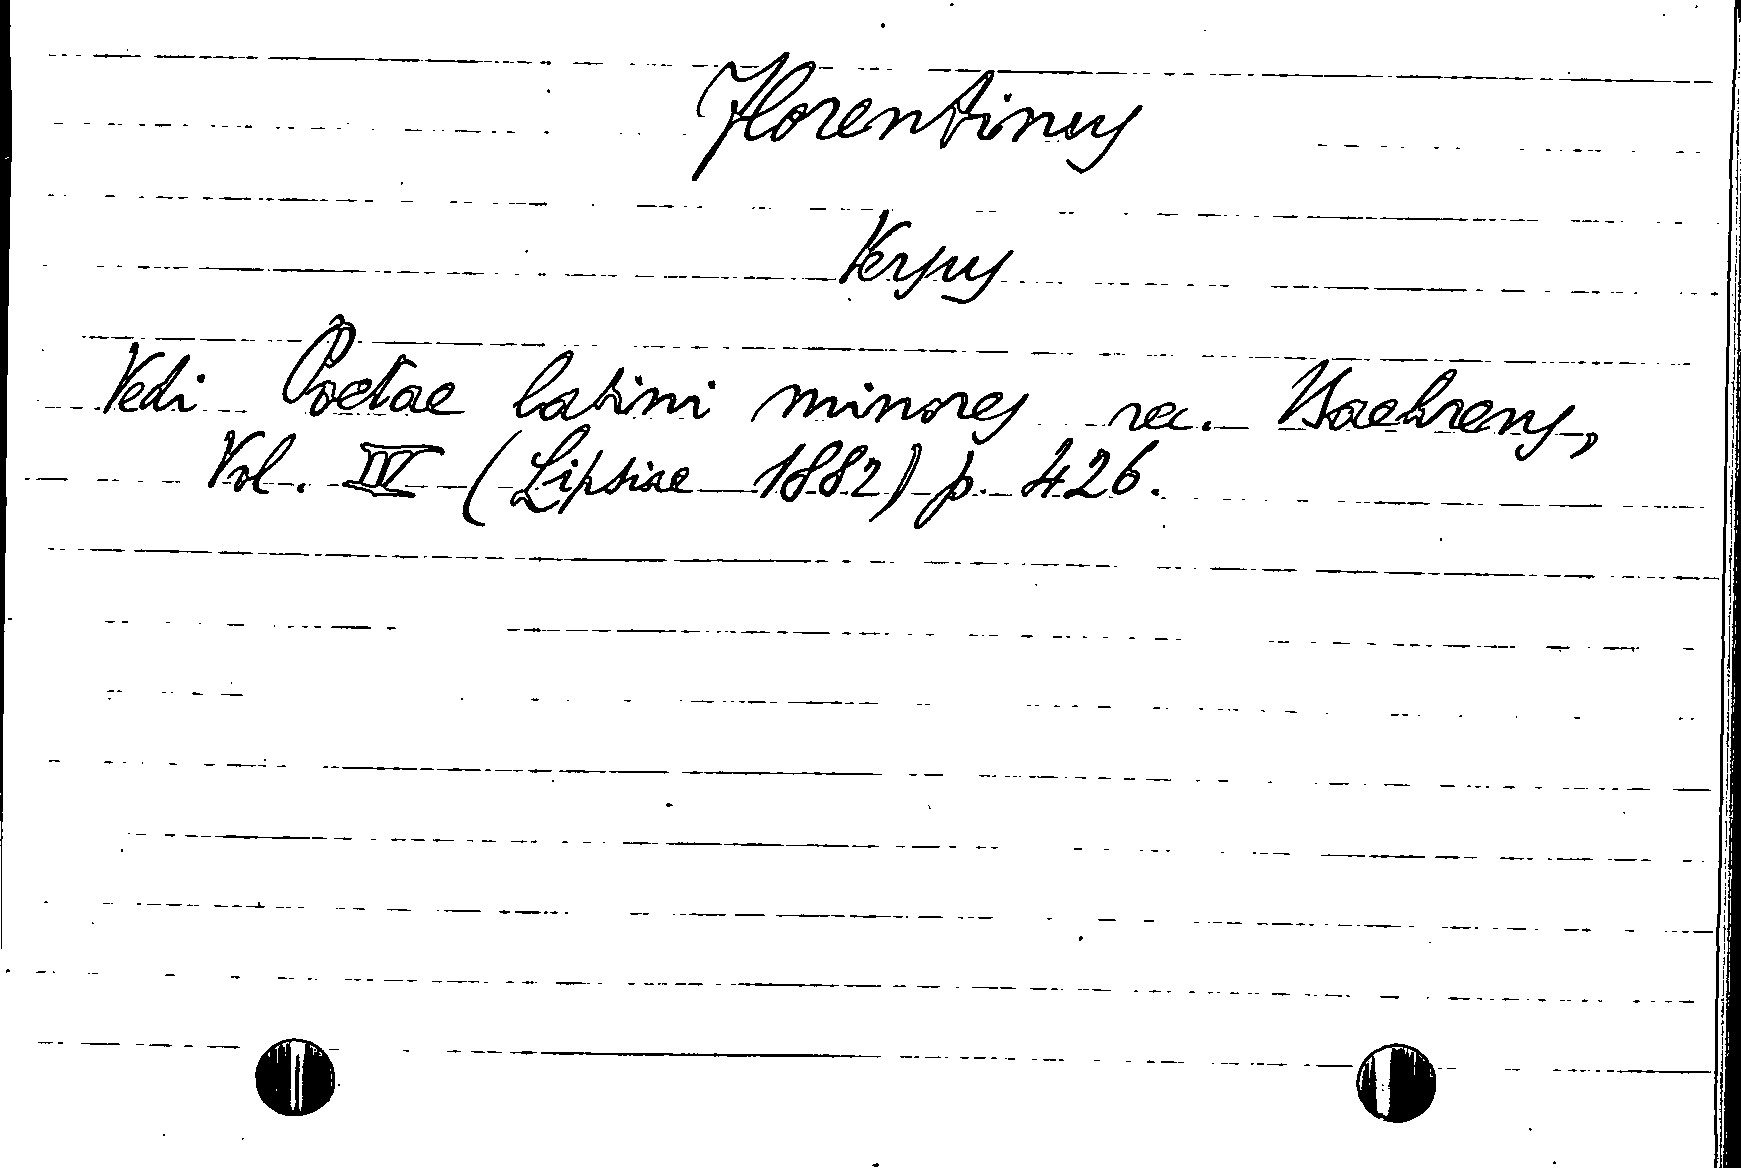 Florentinus
Versus
Vedi Poetae latini minores rec. Baehrens,
Vol. IV (Lipsiae 1882) p. 426.